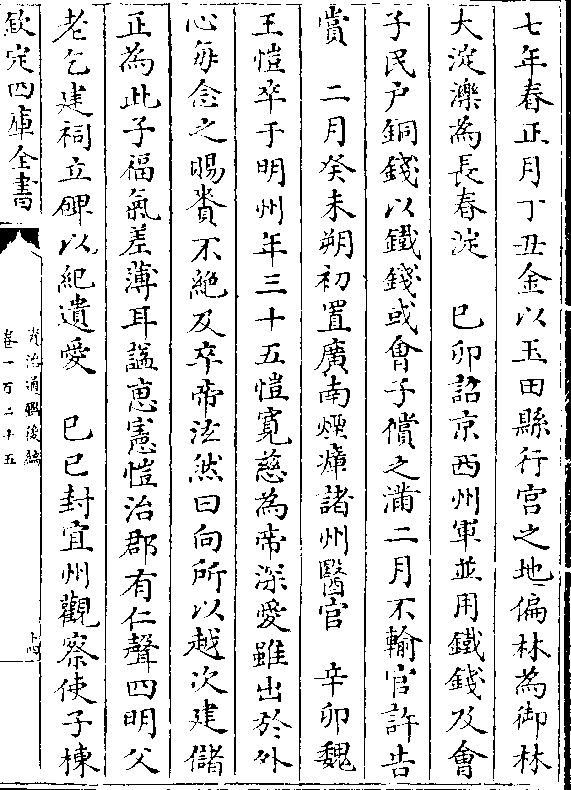 七年春正月丁丑金以玉田縣行宫之地偏林為御林
大淀濼為長春淀　己卯詔京西州軍並用鐵錢及會
子民戶銅錢以鐵錢或會子償之滿二月不輸官許告
賞　二月癸未朔初置廣南煙瘴諸州醫官　辛卯魏
王愷卒于明州年三十五愷寛慈為帝深愛雖出於外
心每念之賜賚不絶及卒帝泫然曰向所以越次建儲
正為此子福氣差薄耳諡惠憲愷治郡有仁聲四明父
老乞建祠立碑以紀遺愛　己巳封宜州觀察使子棟
欽定四庫全書
資治通鑑後編
卷一百二十五